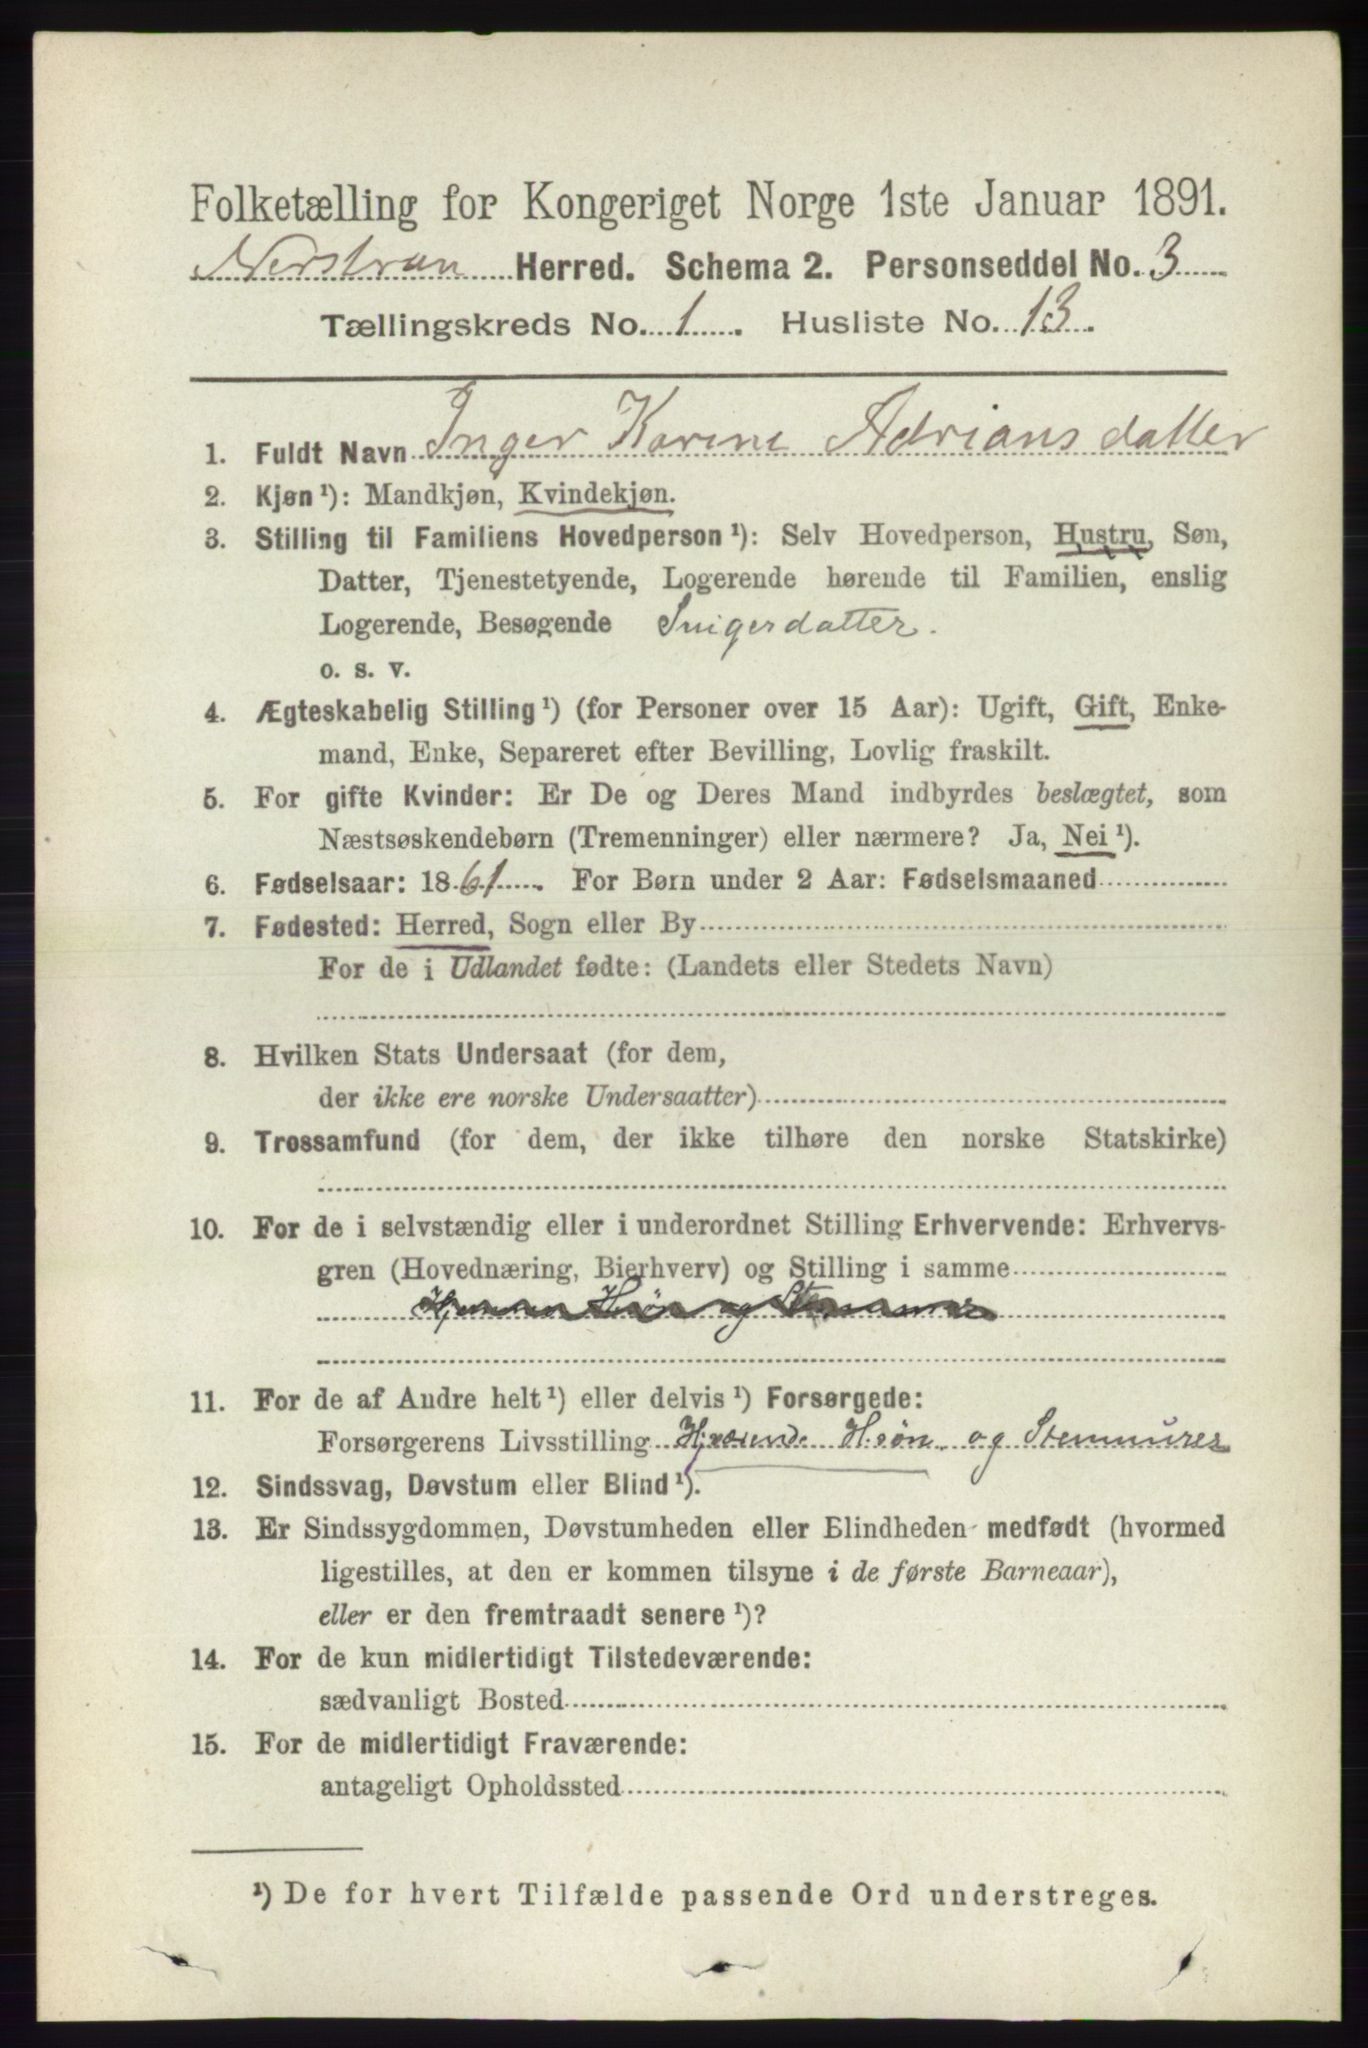 Folketælling for Kongeriget Norge 1ste Januar 1891.
Nerstran Herred. Schema 2. Personseddel No. 3
Tællingskreds No. 1. Husliste No. 13.
1. Fuldt Navn Inger Karine Adriansdatter
2. Kjøn ¹): Mandkjøn, Kvindekjøn.
3. Stilling til Familiens Hovedperson ¹): Selv Hovedperson, Hustru, Søn,
Datter, Tjenestetyende, Logerende hørende til Familien, enslig
Logerende, Besøgende Svigerdatter.
o. s. v.
4. Ægteskabelig Stilling ¹) (for Personer over 15 Aar): Ugift, Gift, Enke-
mand, Enke, Separeret efter Bevilling, Lovlig fraskilt.
5. For gifte Kvinder: Er De og Deres Mand indbyrdes beslægtet, som
Næstsøskendebørn (Tremenninger) eller nærmere? Ja, Nei ¹).
6. Fødselsaar: 1861. For Børn under 2 Aar: Fødselsmaaned
7. Fødested: Herred, Sogn eller By
For de i Udlandet fødte: (Landets eller Stedets Navn)
8. Hvilken Stats Undersaat (for dem,
der ikke ere norske Undersaatter)
9. Trossamfund (for dem, der ikke tilhøre den norske Statskirke)
10. For de i selvstændig eller i underordnet Stilling Erhvervende: Erhvervs-
gren (Hovednæring, Bierhverv) og Stilling i samme
og
11. For de af Andre helt ¹) eller delvis ¹) Forsørgede:
Forsørgerens Livsstilling Hjværend. H.søn. og Stenmurer
12. Sindssvag, Døvstum eller Blind ¹).
13. Er Sindssygdommen, Døvstumheden eller Blindheden medfødt (hvormed
ligestilles, at den er kommen tilsyne i de første Barneaar),
eller er den fremtraadt senere ¹)?
14. For de kun midlertidigt Tilstedeværende:
sædvanligt Bosted
15. For de midlertidigt Fraværende:
antageligt Opholdssted
¹) De for hvert Tilfælde passende Ord understreges.